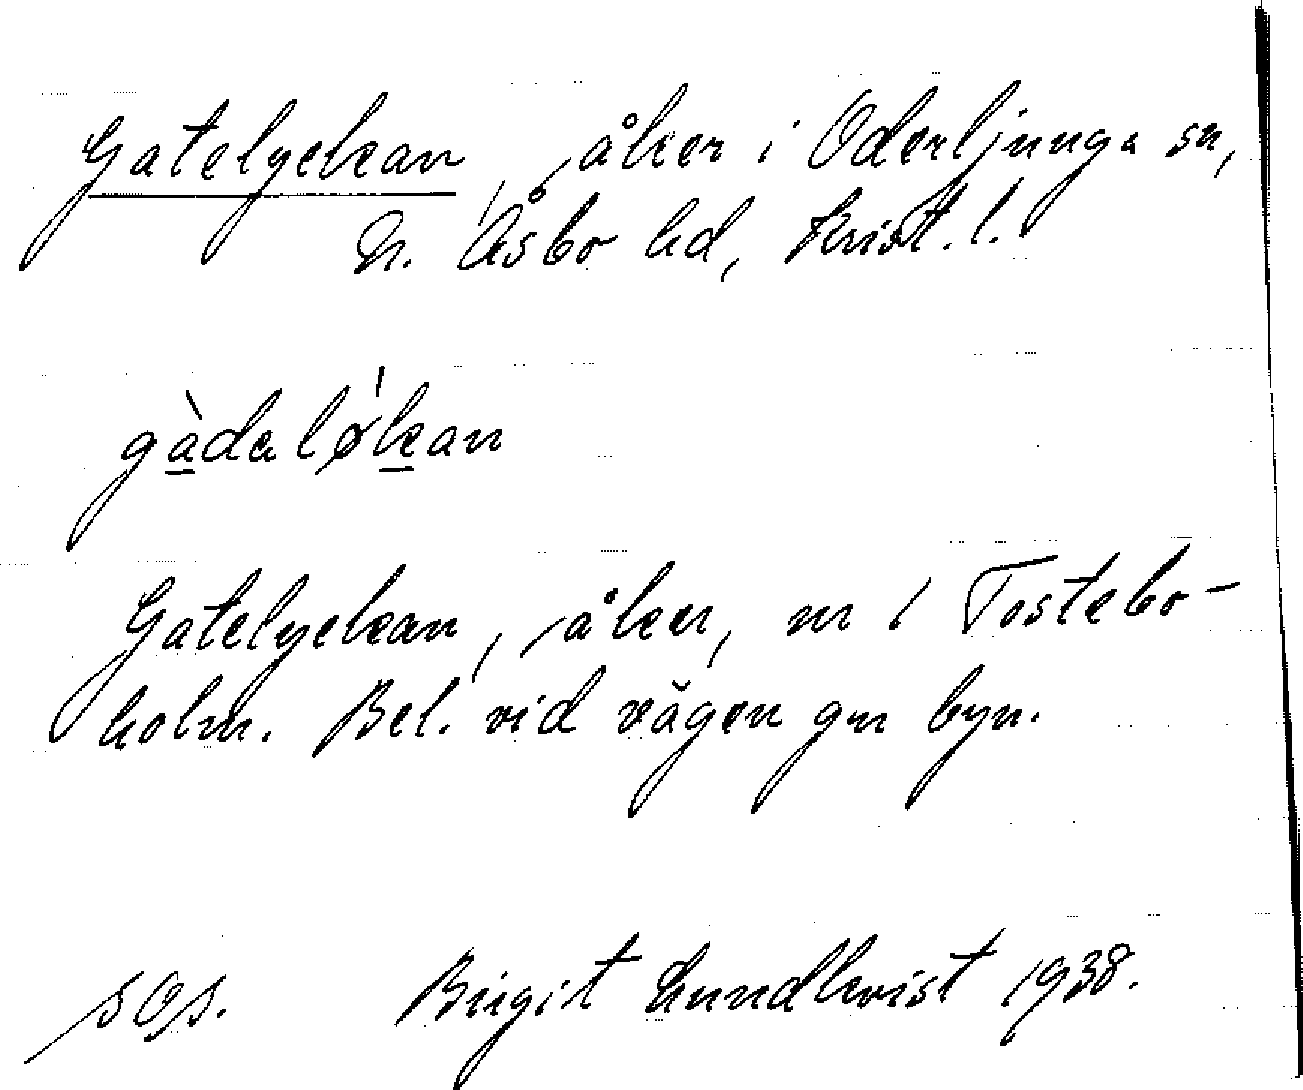 Gatelyckan, åker i Oderljunga sn,
N. Åsbo hd, Krist. l.
gàdalø̀kan
Gatelyckan, åker, nr 1 Tostebo-
holm. Bel. vid vägen gm byn.
sOs. Birgit Lundkvist 1938.